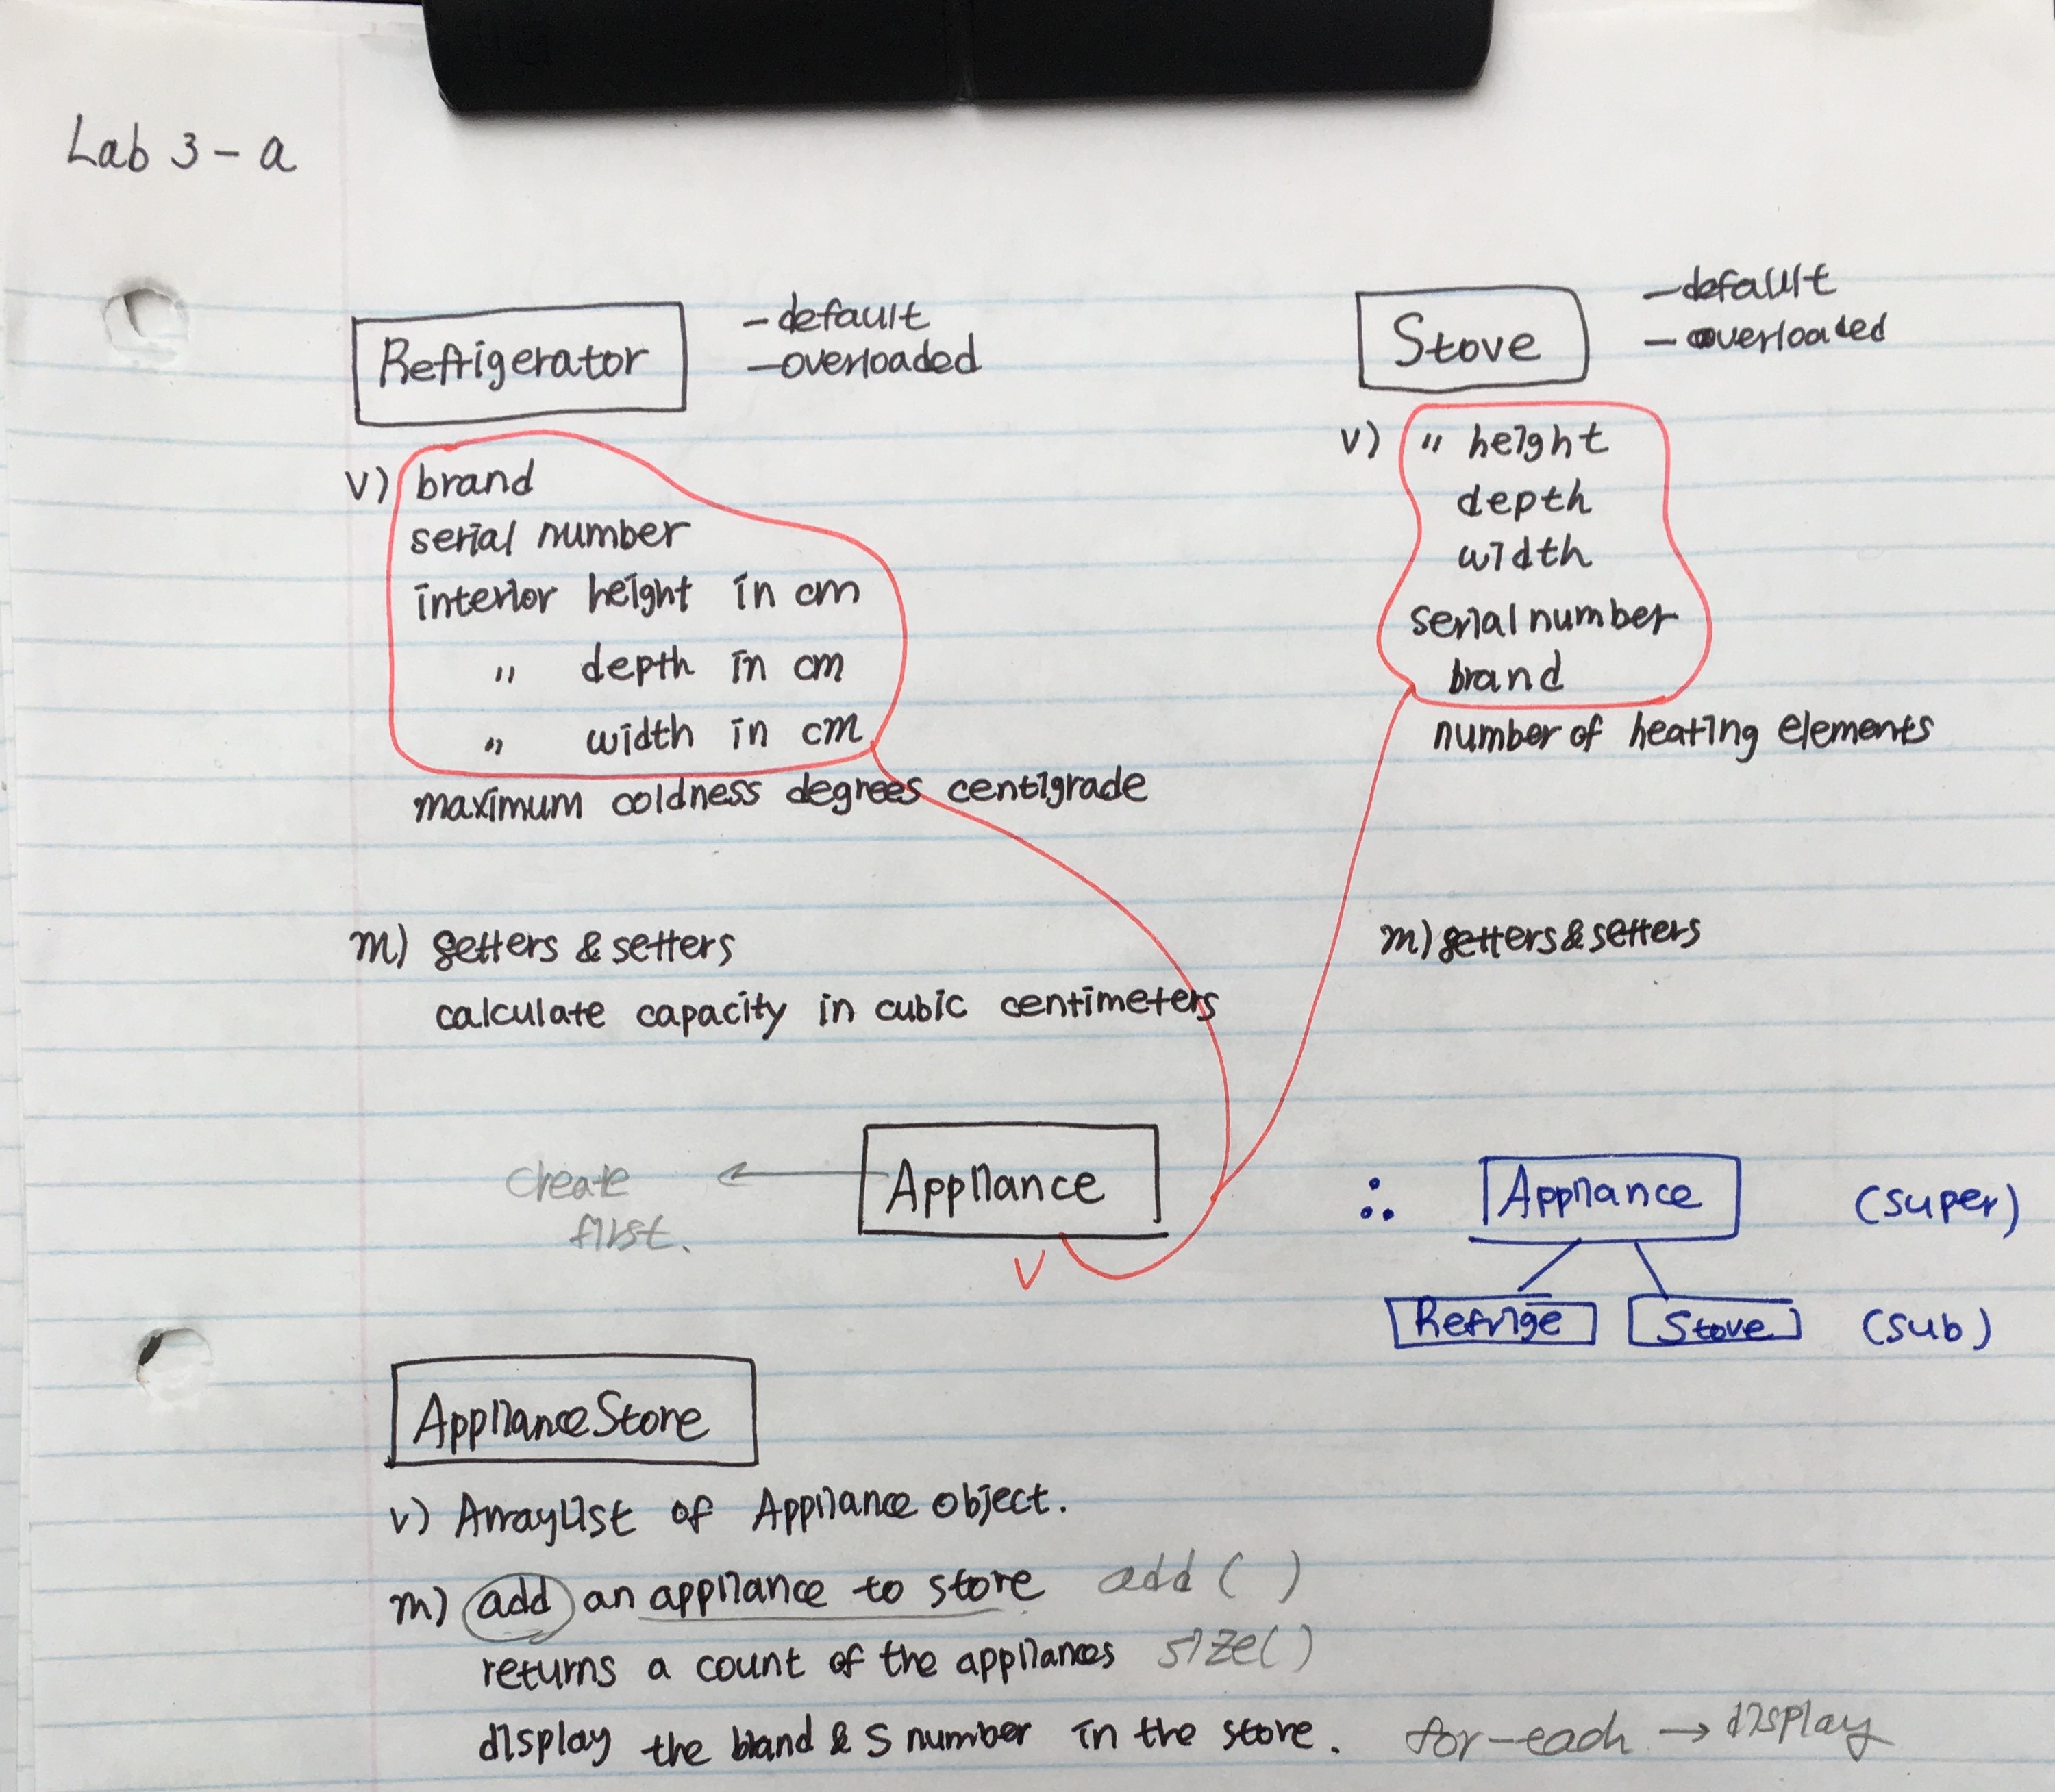 Lab 3 - a
Refrigerator
- default
- overloaded
v) brand
serial number
interior height in cm
" depth in cm
" width in cm
maximum coldness degrees centigrade
m) getters & setters
calculate capacity in cubic centimeters
Stove
- default
- overloaded
v) " height
depth
width
serial number
brand
number of heating elements
m) getters & setters
create
first.
← Appliance
v
∴ Appliance (super)
Refrige Stove (sub)
ApplianceStore
v) ArrayList of Appliance object.
m) add an appliance to store add ( )
returns a count of the appliances size( )
display the bland & S number in the store. for-each → display